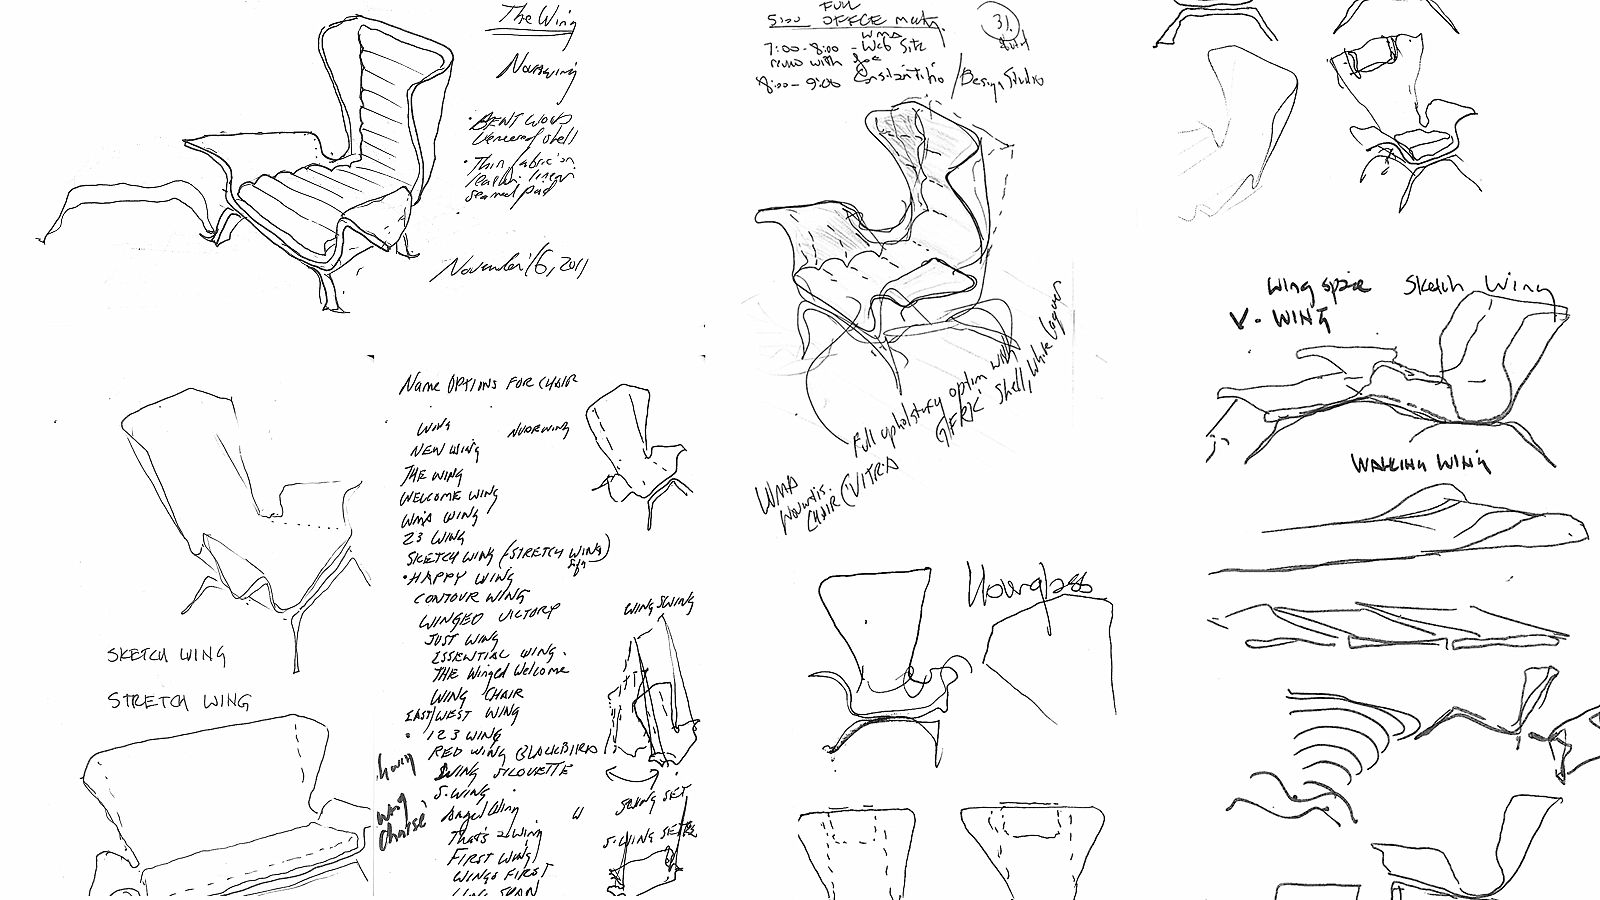 The Wing
Nuorwing
• BENT WOOD
Veneered shell
• Thin fabric on
seamed pad
November 16, 2011
Name OPTIONS FOR CHAIR
WING
NUORWING
NEW WING
THE WING
WELCOME WING
WMA WING
23 WING
SKETCH WING (STRETCH WING)
• HAPPY WING
CONTOUR WING
WINGED VICTORY
JUST WING
ESSENTIAL WING.
THE Winged Welcome
WING CHAIR
EAST/WEST WING
• 123 WING
RED WING BLACKBIRD
WING SILOUETTE
S-WING
Angel Wing
That's a wing
FIRST WING
WINGS FIRST
WING SPAN
wing
Chaise
WING SWING
SWING SET
S-WING SETTE
SKETCH WING
STRETCH WING
FULL
5:00 OFFICE Meetg.
WMA
7:00-8:00 - Web Site
revw with Joe
8:00-9:00 Constantino / Design Studio
31.
Full upholstery option with
GFRK Shell, White Legs
WMA
CHAIR (VITRA
Hourglass
Wing spire Sketch Wing
V-WING
WALKING WING